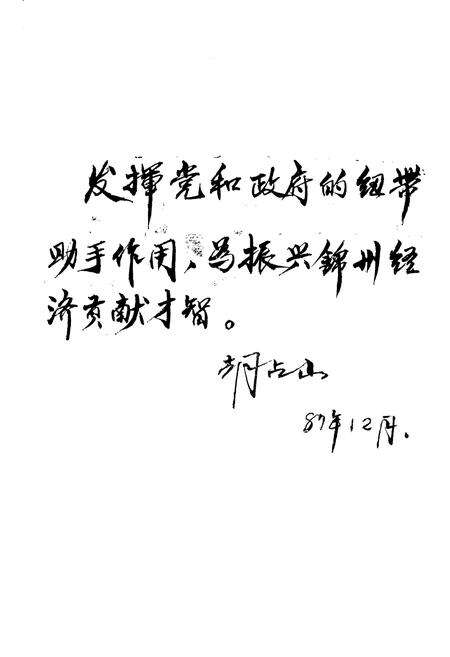 发揮党和政府的纽带
助手作用、为振兴錦州经
济贡献才智。
胡占山
87年12月.